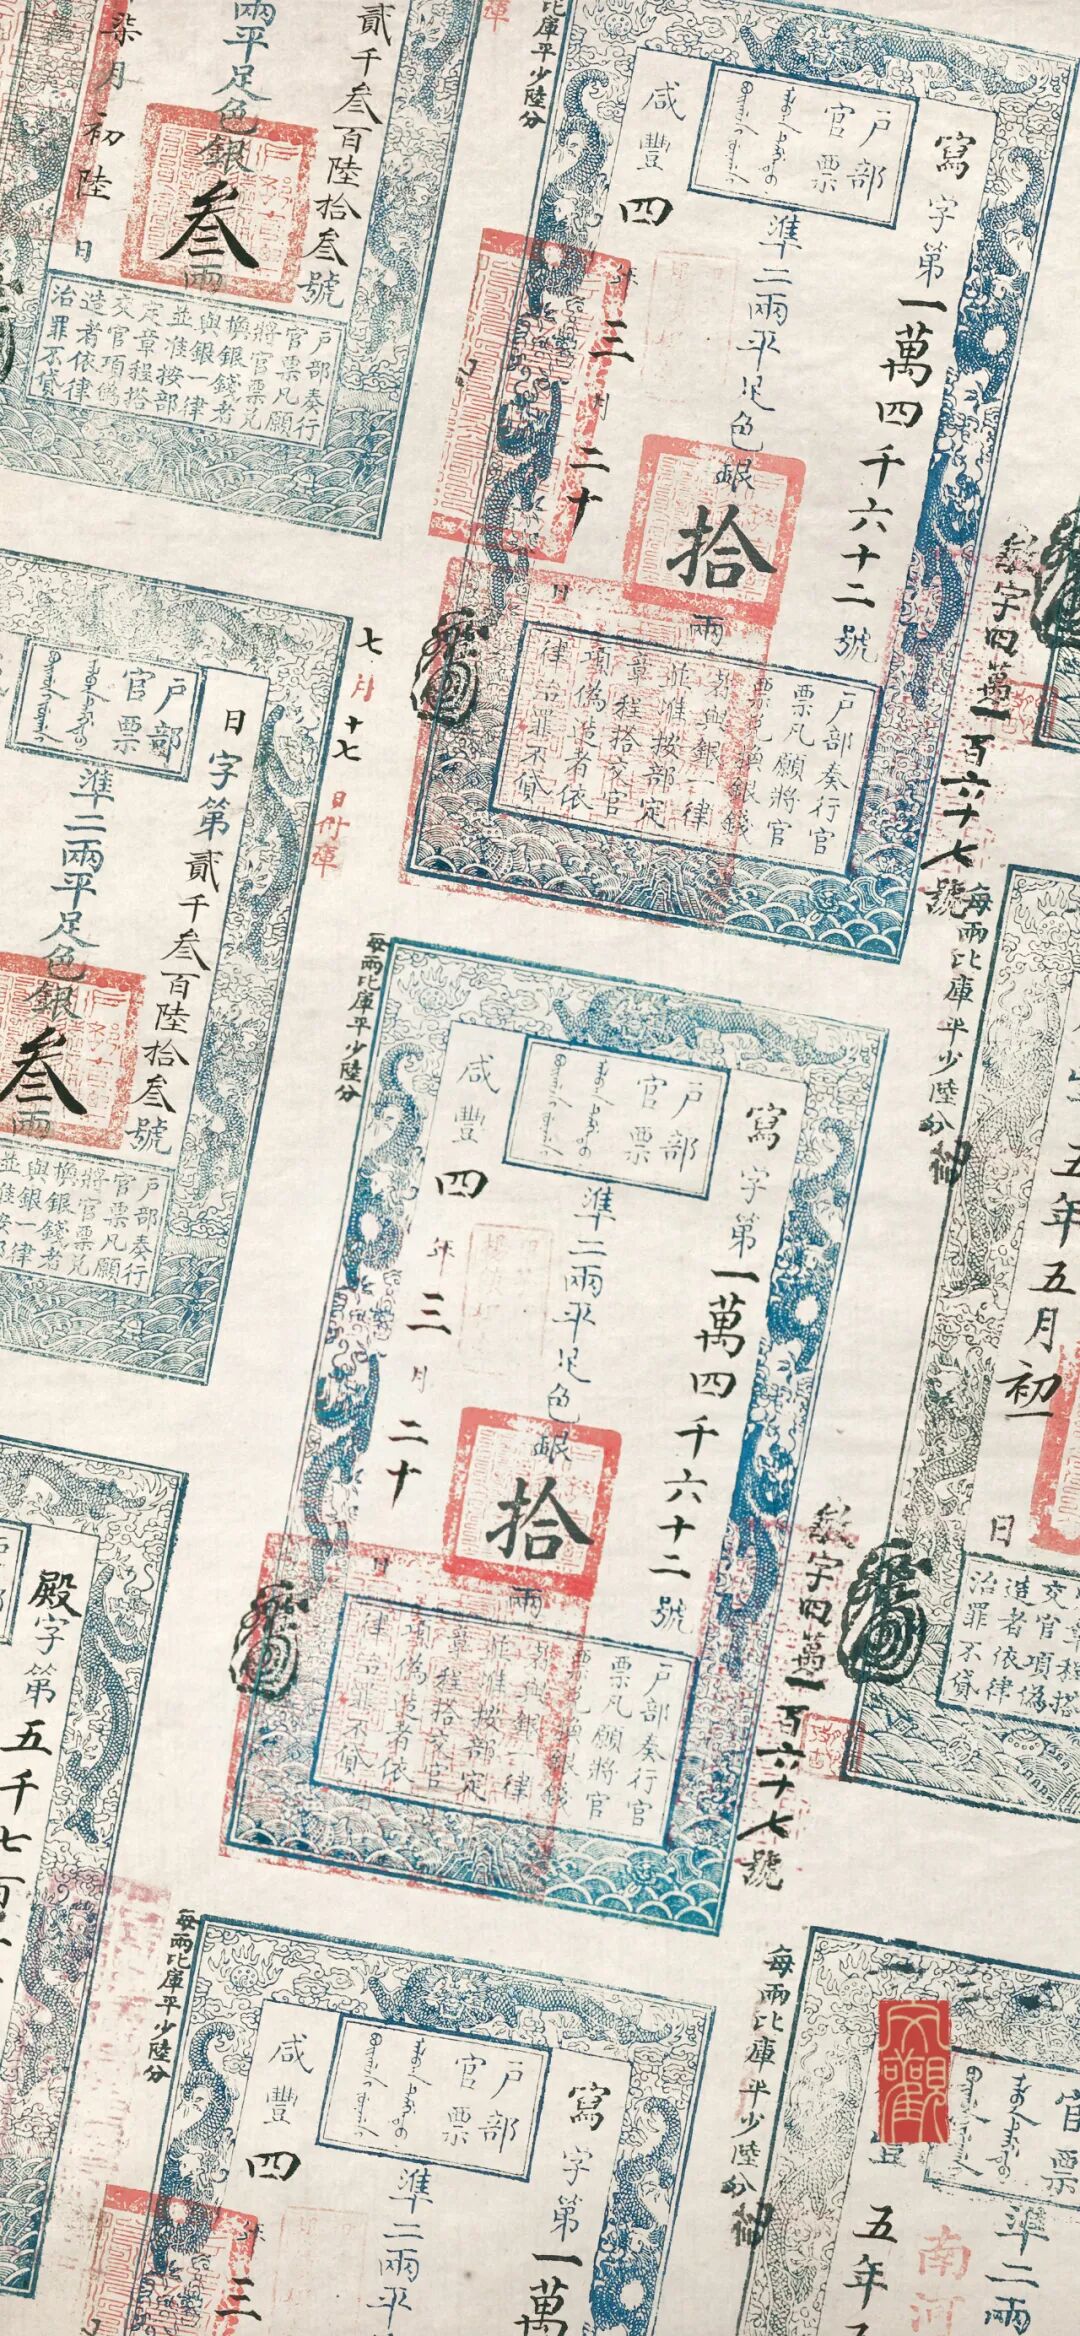 柒月初陸日
兩平足色銀叁兩
貳千叁百陸拾叁號
戶部奏行
官票凡願
將官票兌
換銀錢者
與銀一律
並准按部
定章程搭
交官項偽
造者依律
治罪不貸
比庫平少陸分
戶部
官票
寫字第一萬四千六十二號
準二兩平足色銀拾兩
咸豐四年三月二十日
戶部奏行官
票凡願將官
票兌換銀錢
者與銀一律
並准按部定
章程搭交官
項偽造者依
律治罪不貸
字四萬一百六十七號
七月十七日
戶部
官票
日字第貳千叁百陸拾叁號
準二兩平足色銀叁兩
戶部奏行
官票凡願
將官票兌
換銀錢者
與銀一律
每兩比庫平少陸分
戶部
官票
寫字第一萬四千六十二號
準二兩平足色銀拾兩
咸豐四年三月二十日
戶部奏行官
票凡願將官
票兌換銀錢
者與銀一律
並准按部定
章程搭交官
項偽造者依
律治罪不貸
字四萬一百六十七號
每兩比庫平少陸分
五年五月初一日
交官項偽
造者依律
治罪不貸
殿字第五千七百
每兩比庫平少陸分
戶部
官票
寫字第一萬
準二兩平
咸豐四年三
每兩比庫平少陸分
官票
準二兩
五年
南河